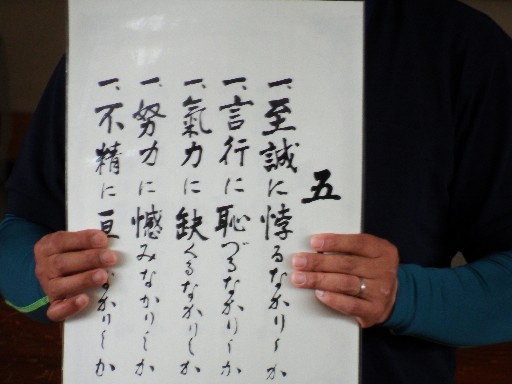 五
一、至誠に悖るなかりしか
一、言行に恥づるなかりしか
一、氣力に缺くるなかりしか
一、努力に憾みなかりしか
一、不精に亘るなかりしか